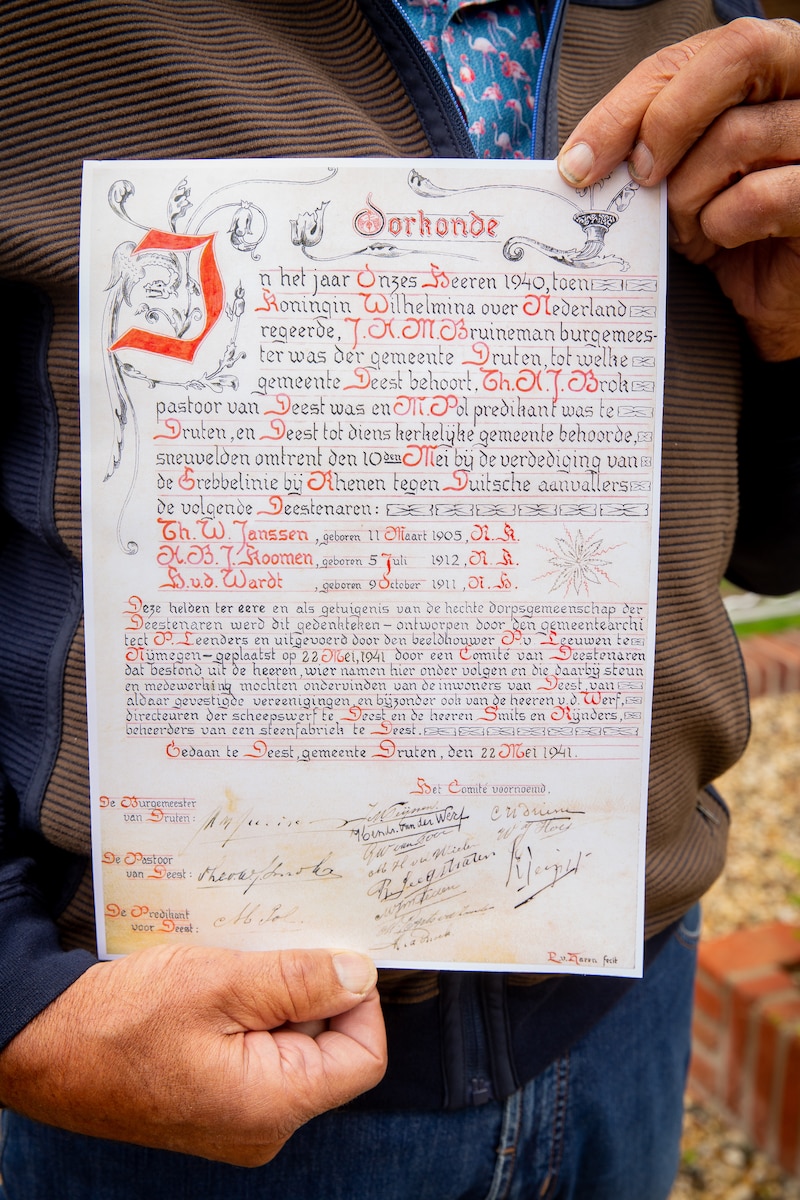 Oorkonde
In het jaar Onzes Heeren 1940, toen
Koningin Wilhelmina over Nederland
regeerde, J.A.M. Bruineman burgemees-
ter was der gemeente Druten, tot welke
gemeente Deest behoort. Th. A. J. Brok
pastoor van Deest was en M. Pol predikant was te
Druten, en Deest tot diens kerkelijke gemeente behoorde,
sneuvelden omtrent den 10den Mei bij de verdediging van
de Grebbelinie bij Rhenen tegen Duitsche aanvallers
de volgende Deestenaren:
Th. W. Janssen, geboren 11 Maart 1905, R.K.
A. B. J. Koomen, geboren 5 Juli 1912, R.K.
H. v.d. Wardt, geboren 9 October 1911, N.H.
Deze helden ter eere en als getuigenis van de hechte dorpsgemeenschap der
Deestenaren werd dit gedenkteken – ontworpen door den gemeentearchi
tect P. Leenders en uitgevoerd door den beeldhouwer P. v. Leeuwen te
Nijmegen – geplaatst op 22 Mei, 1941 door een Comité van Deestenaren
dat bestond uit de heeren, wier namen hier onder volgen en die daarbij steun
en medewerking mochten ondervinden van de inwoners van Deest, van
aldaar gevestigde vereenigingen, en bijzonder ook van de heeren v.d. Werf,
directeuren der scheepswerf te Deest en de heeren Smits en Rijnders,
beheerders van een steenfabriek te Deest.
Gedaan te Deest, gemeente Druten, den 22 Mei 1941.
Het Comité voornoemd,
De Burgemeester
van Druten:
Hendr. van der Werf
De Pastoor
van Deest:
De Predikant
voor Deest:
M. Pol.
fecit